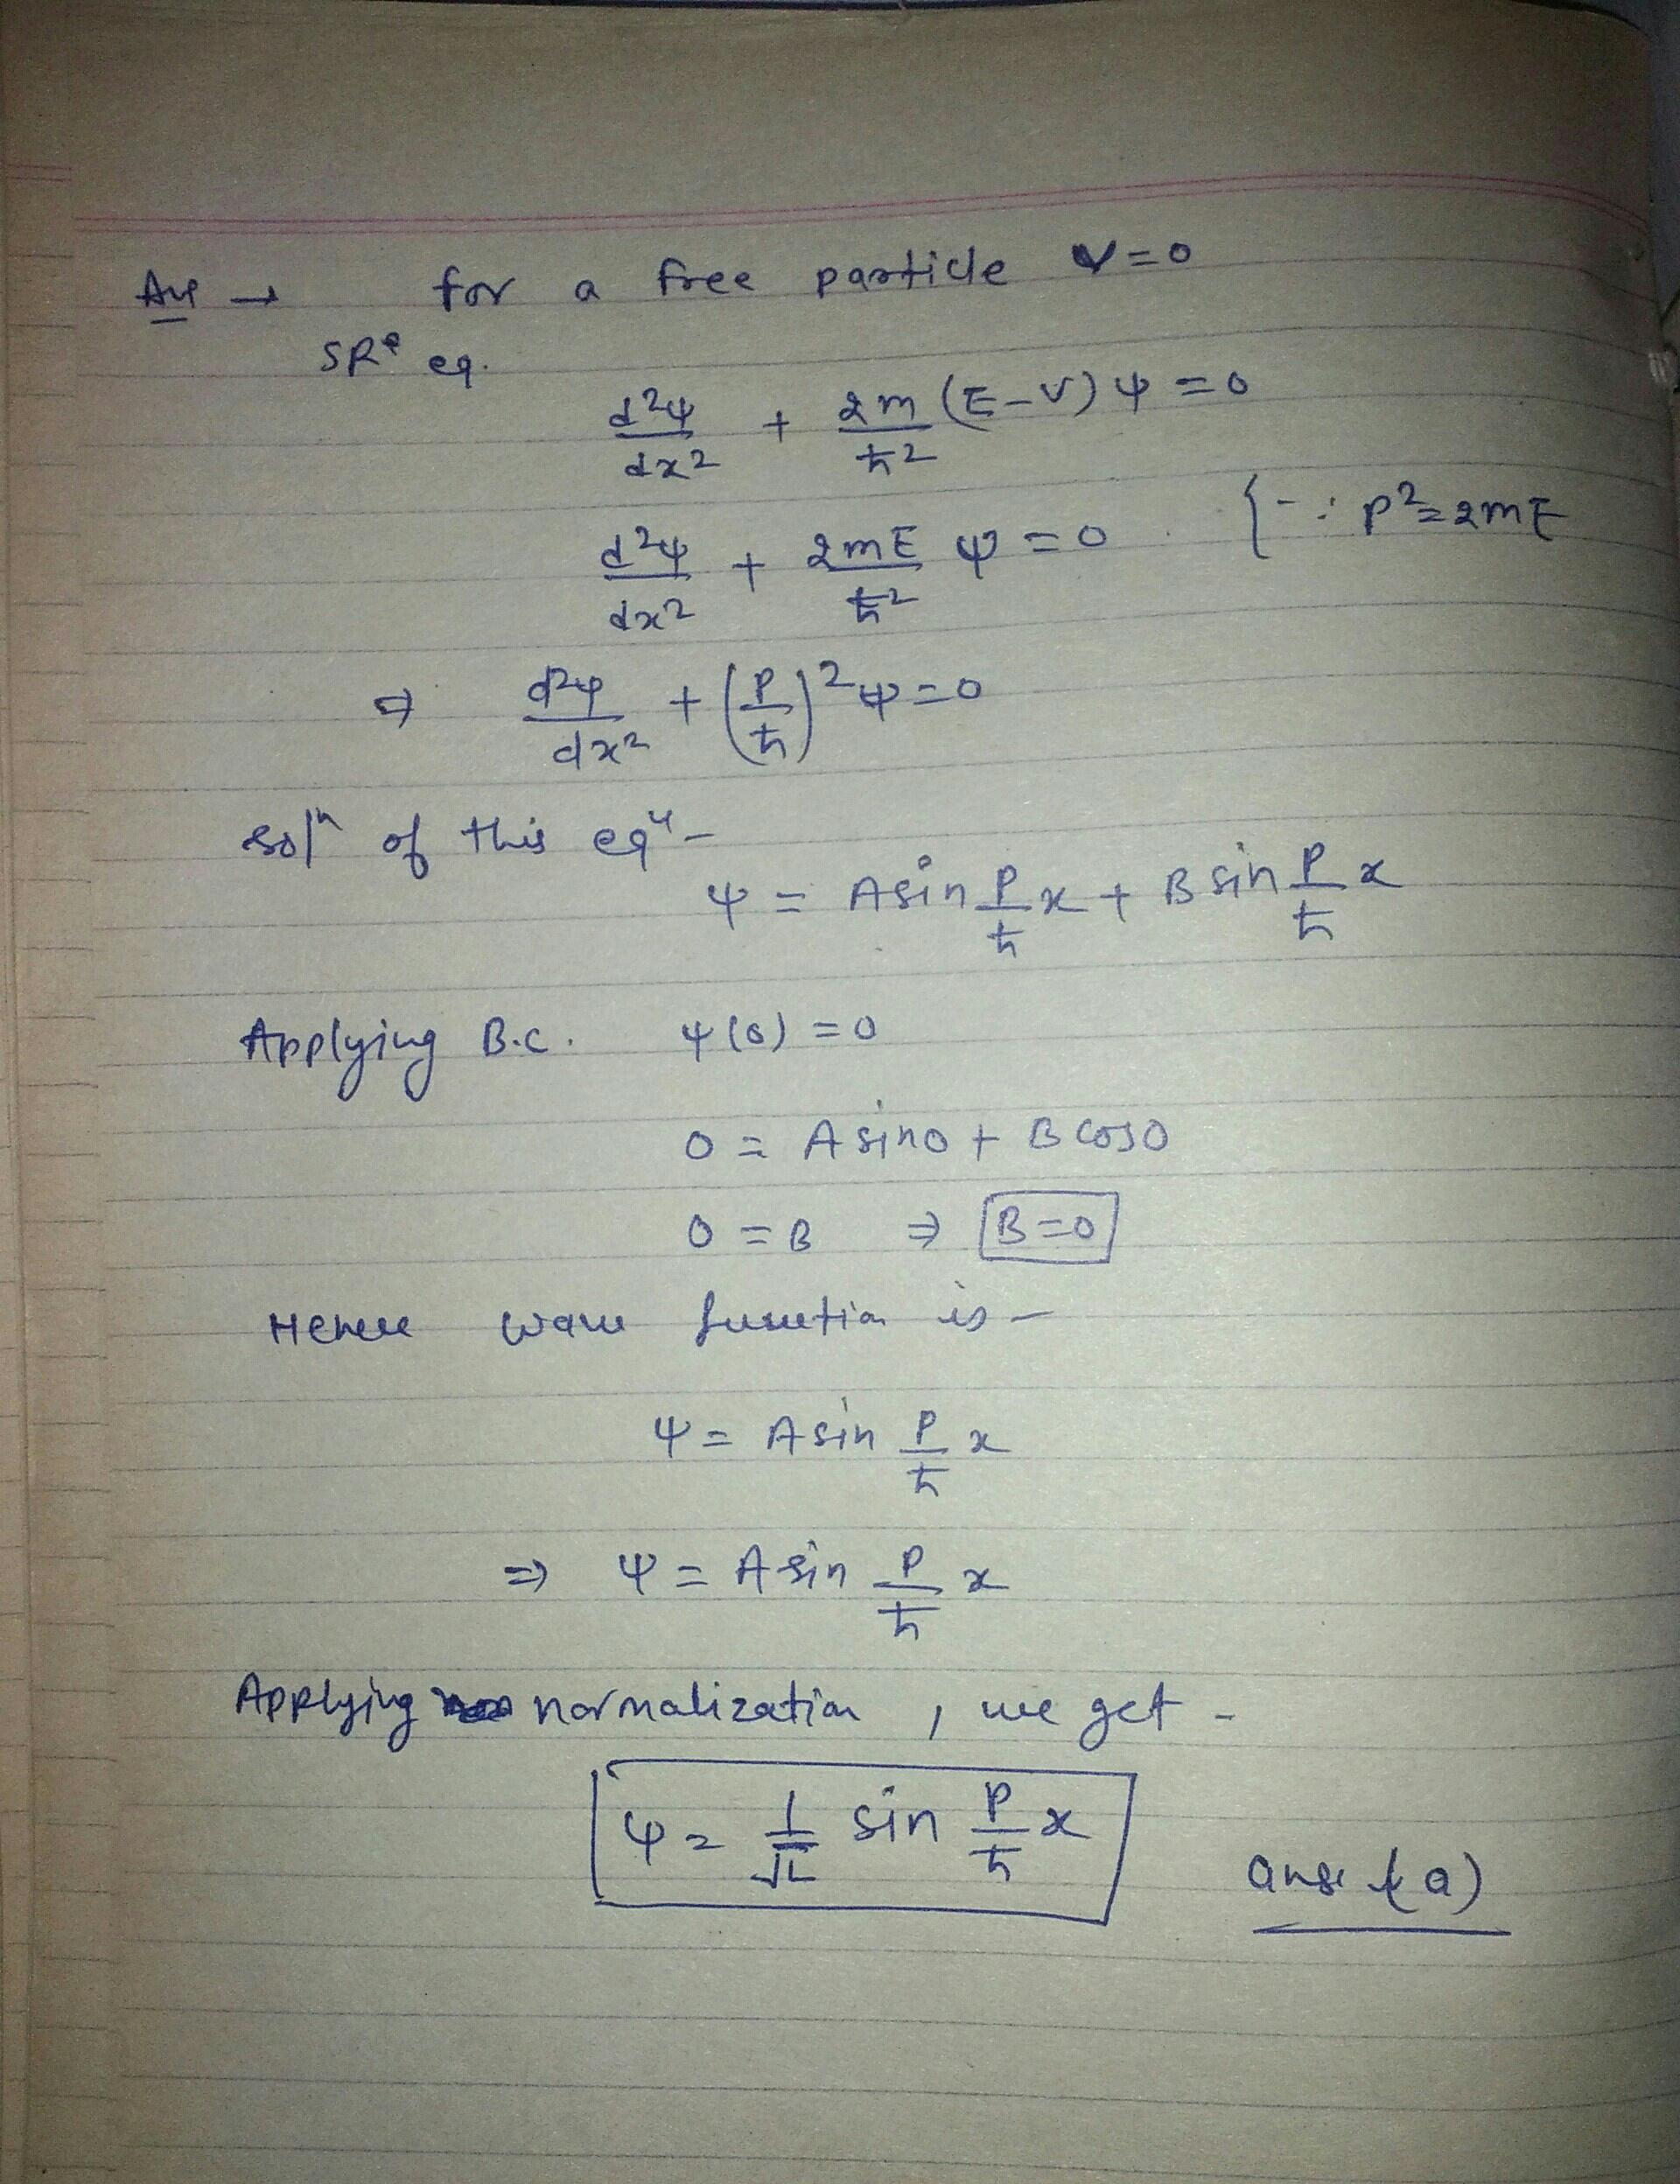 Ans → for a free particle V=0
SRᵉ eq.
d²ψ/dx² + 2m/ħ² (E-V) ψ = 0
d²ψ/dx² + 2mE/ħ² ψ = 0 {∵ p²=2mE
⇒ d²ψ/dx² + (P/ħ)² ψ = 0
solⁿ of this eqⁿ -
ψ = A sin P/ħ x + B sin P/ħ x
Applying B.C. ψ(0) = 0
0 = A sin0 + B cos0
0 = B ⇒ B=0
Hence wave function is -
ψ = A sin P/ħ x
⇒ ψ = A sin P/ħ x
Applying normalization, we get -
ψ = 1/√L sin P/ħ x
ans: (a)